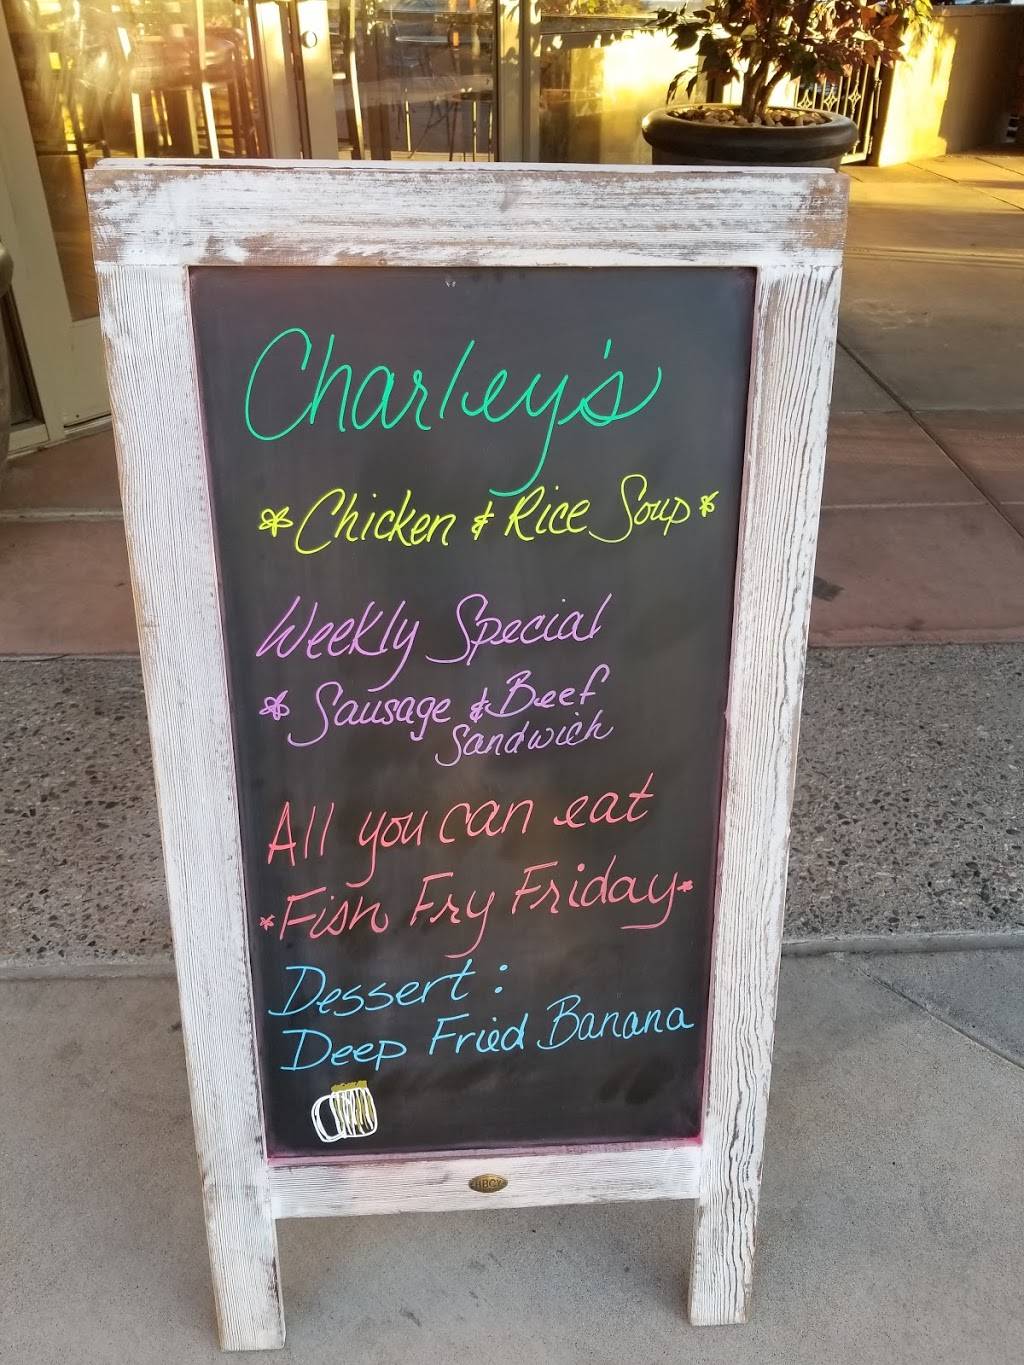 Charley's
* Chicken & Rice Soup *
Weekly Special
* Sausage & Beef
Sandwich
All you can eat
* Fish Fry Friday *
Dessert :
Deep Fried Banana
HBCY